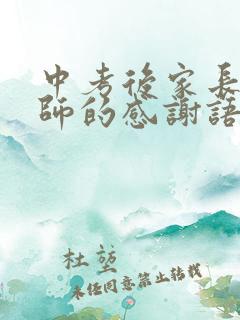 中考後家長
師的感謝語
杜堃
未经同意禁止转载